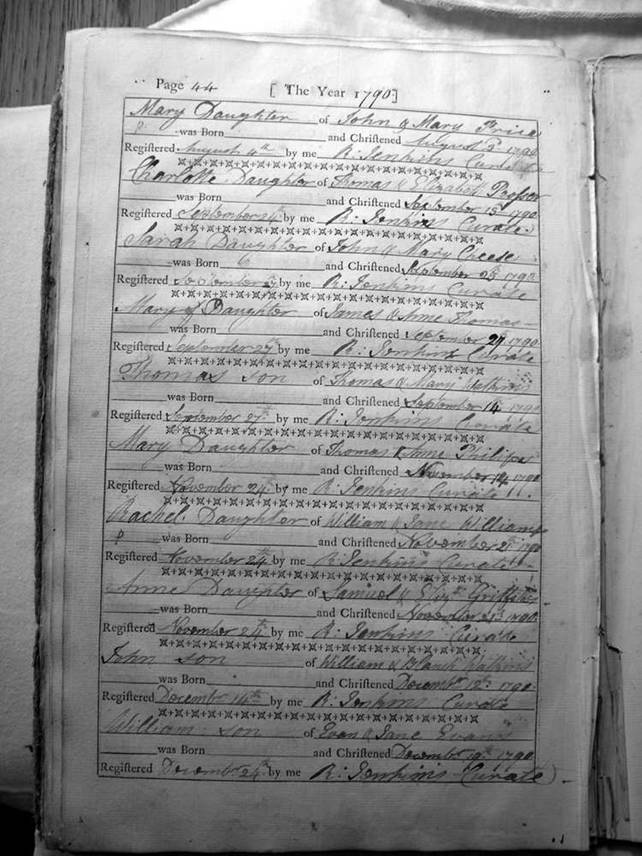 Page 44 [ The Year 1790 ]
Mary Daughter of John & Mary Price
P was Born and Chriſtened August 1790
Regiſtered August 4th by me R: Jenkins Curate
Charlotte Daughter of Thomas & Elizabeth Prosser
was Born and Chriſtened September 15 1790
Regiſtered September 24th by me R: Jenkins Curate
Sarah Daughter of John & Mary Creese
was Born and Chriſtened September 1790
Regiſtered September 27 by me R: Jenkins Curate
Mary Daughter of James & Anne Thomas
was Born and Chriſtened September 1790
Regiſtered September 27th by me R: Jenkins Curate
Thomas Son of Thomas & Mary Watkins
was Born and Chriſtened September 14 1790
Regiſtered September 27th by me R: Jenkins Curate
Mary Daughter of Thomas & Anne Philips
was Born and Chriſtened November 14 1790
Regiſtered November 24th by me R: Jenkins Curate
Rachel Daughter of William & Jane Williams
P was Born and Chriſtened November 21 1790
Regiſtered November 24th by me R: Jenkins Curate
Anne Daughter of Samuel & Elizth Griffiths
was Born and Chriſtened November 1790
Regiſtered November 24th by me R: Jenkins Curate
John Son of William & Blanch Watkins
was Born and Chriſtened Decembr 12th 1790
Regiſtered Decembr 14th by me R: Jenkins Curate
William Son of Evan & Jane Evans
was Born and Chriſtened Decembr 19th 1790
Regiſtered Decembr 24th by me R: Jenkins Curate